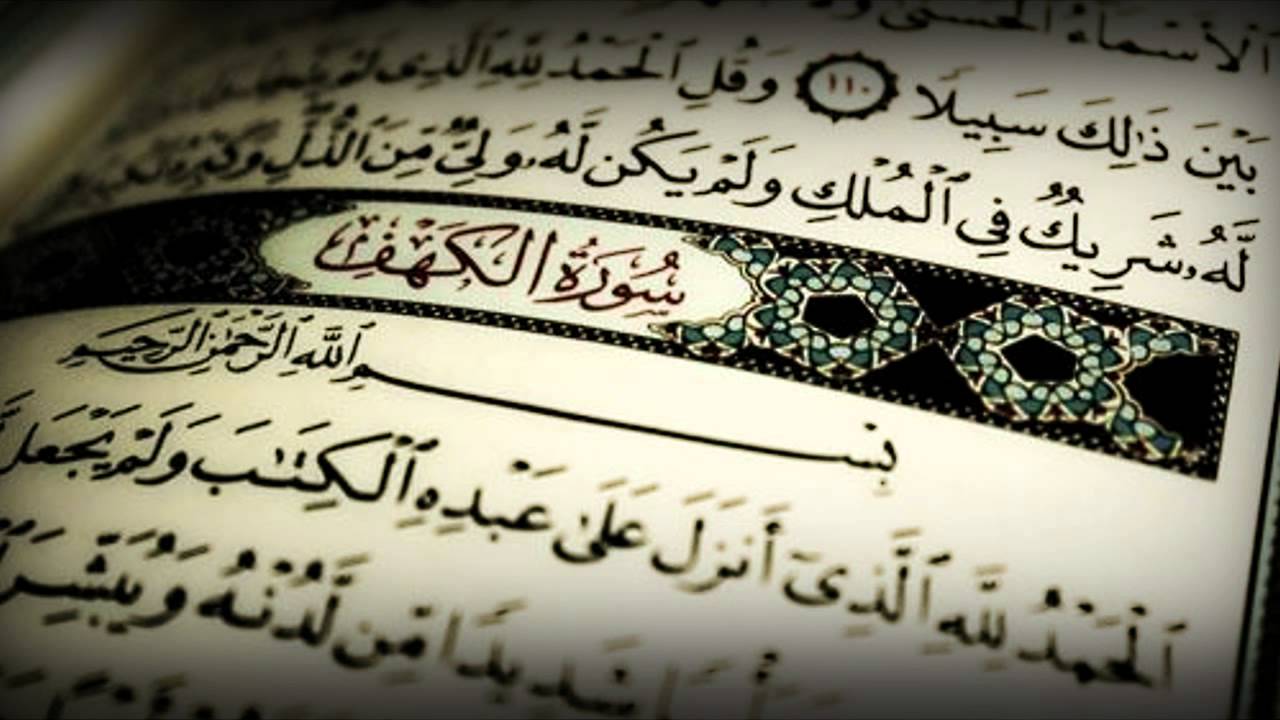 ٱلْأَسْمَآءُ ٱلْحُسْنَىٰ
بَيْنَ ذَٰلِكَ سَبِيلًا ١١٠ وَقُلِ ٱلْحَمْدُ لِلَّهِ ٱلَّذِى لَمْ
لَّهُۥ شَرِيكٌ فِى ٱلْمُلْكِ وَلَمْ يَكُن لَّهُۥ وَلِىٌّ مِّنَ ٱلذُّلِّ وَكَبِّرْهُ
سُورَةُ الكَهْفِ
بِسْمِ ٱللَّهِ ٱلرَّحْمَٰنِ ٱلرَّحِيمِ
ٱلْحَمْدُ لِلَّهِ ٱلَّذِىٓ أَنزَلَ عَلَىٰ عَبْدِهِ ٱلْكِتَٰبَ وَلَمْ يَجْعَل
شَدِيدًا مِّن لَّدُنْهُ وَيُبَشِّرَ